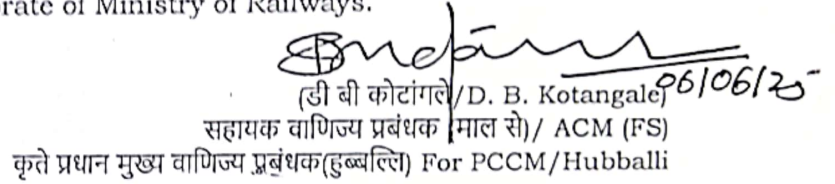 rate of Ministry of Railways.
06/06/25
(डी बी कोटांगले/D. B. Kotangale)
सहायक वाणिज्य प्रबंधक (माल से)/ ACM (FS)
कृते प्रधान मुख्य वाणिज्य प्रबंधक(हुब्बल्लि) For PCCM/Hubballi